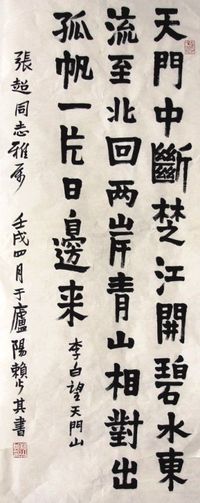 天門中斷楚江開碧水東
流至北回两岸青山相對出
孤帆一片日邊来
李白望天門山
張超同志雅属
壬戌四月于廬陽賴少其書